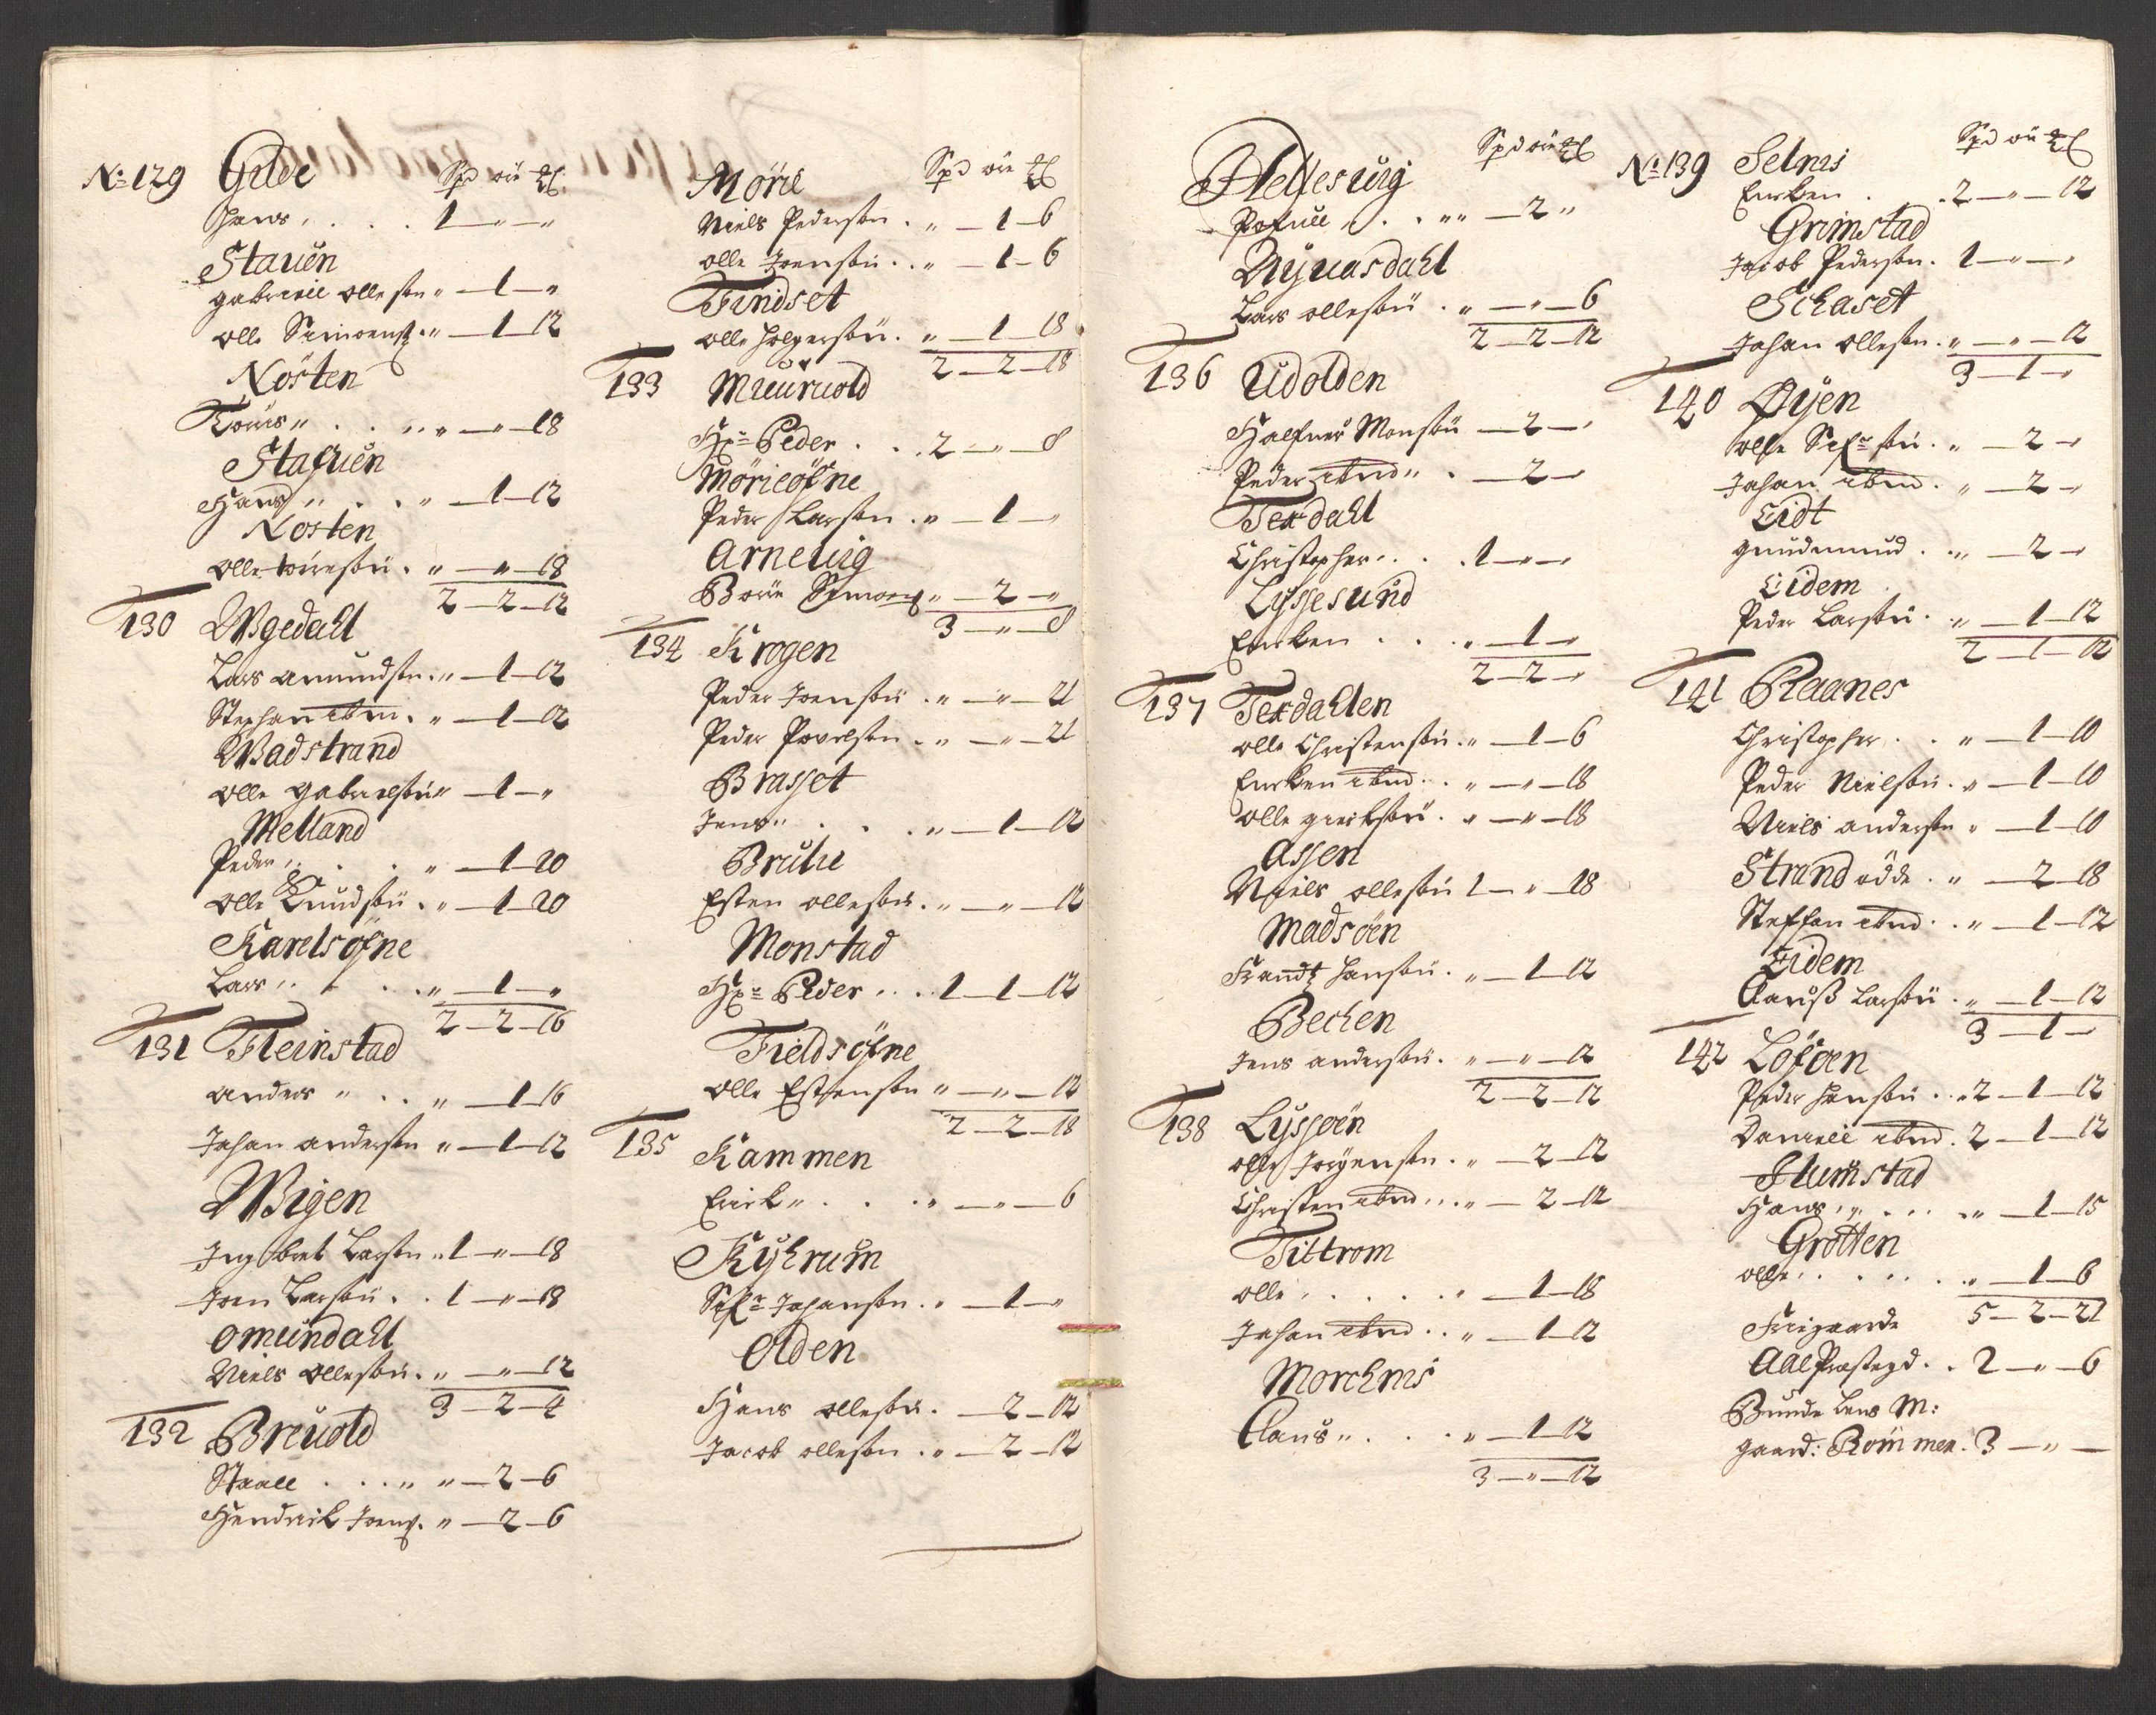 No: 129 Gilde Spd ort ß
Hans . . . . 1 — " — "
Stauen
Gabriell Ollesøn " — 1 — "
Olle Simons: " — 1 — 12
Nösten
Tøris " . . " — " — 18
Stafuen
Hans " . . " — 1 — 12
Nosten
Olle Tóresön . " — " — 18
2 — 2 — 12
130 Wgedahl
Lars Amundsøn . " — 1 — 12
Stephan ibm . " — 1 — 12
Wadstrand
Olle Gabrielsön " — 1 — "
Melland
Peder " . . " — 1 — 20
Olle Knudsön . " — 1 — 20
Karelsøfne
Lars " . . " — 1 — "
2 — 2 — 16
131 Fleinstad
Anders " . . " — 1 — 16
Johan Andersøn " — 1 — 12
Wigen
Ingebret Larsøn . 1 — " — 18
Joen Larsön . . 1 — " — 18
Omundahl
Niels Ollesön . " — " — 12
3 — 2 — 4
132 Breuold
Staall . . . " " — 2 — 6
Hendrik Joens: " — 2 — 6
Mörie Spd ort ß
Niels Pedersøn . " — 1 — 6
Olle Joensön . . " — 1 — 6
Findset
Olle Holgersön . " — 1 — 18
2 — 2 — 18
133 Muuruold
Hr: Peder . . . 2 — " — 8
Mörieöfne
Peder Larsøn . " — 1 — "
Arneuig
Börie Simons: " — 2 — "
3 — " — 8
134 Krogen
Peder Joensön . " — " — 21
Peder Povelsøn . " — " — 21
Brasset
Jens " . . . " — 1 — 12
Bruhe
Esten Ollesøn . " — " — 12
Monstad
Hr: Peder . . . 1 — 1 — 12
Fieldsöfne
Olle Estensøn " — " — 12
2 — 2 — 18
135 Kammen
Erick " . . . " — " — 6
Kÿhrum
Sifr: Johansøn . " — 1 — "
Olden
Hans Ollesøn . — 2 — 12
Jacob Ollesøn . " — 2 — 12
Hellesuig Spd ort ß
Pofuell . . " " — 2 "
Nÿuasdahl
Lars Ollesön . " — " — 6
2 — 2 — 12
136 Udolden
Halfuer Monsön — 2 — "
Peder ibm " . — 2 — "
Texdahl
Christopher . . . 1 — " — "
Lyssesund
Encken . . . " — 1 — "
2 — 2 — "
137 Texdahlen
Olle Christensön . " — 1 — 6
Encken ibm . . " — " — 18
Olle Giertsön . " — " — 18
Assen
Niels Ollesön 1 — " — 18
Madsöen
Frandtz Hansön . " — 1 — 12
Bechen
Jens Andersön . " — " — 12
2 — 2 — 12
138 Lyssöen
Olle Jørgensøn . " — 2 — 12
Christen ibm . . " — 2 — 12
Tittrom
Olle . . . . . " — 1 — 18
Johan ibm . . " — 1 — 12
Morchnis
Claus " . . . " — 1 — 12
3 — " — 12
No: 139 Selnis Spd ort ß
Encken . . 2 — " — 12
Grimstad
Jacob Pedersøn . 1 — " — "
Schaset
Johan Ollesøn . " — " — 12
3 — 1 — "
140 Øyen
Olle Sifr:sön . " — 2 — "
Johan ibm . " — 2 — "
Eidt
Gudmund . " — 2 — "
Eidem
Peder Larsön . " — 1 — 12
2 — 1 — 12
141 Raanes
Christopher . . " — 1 — 10
Peder Nielsön . " — 1 — 10
Niels Andersøn " — 1 — 10
Strandödde . " — 2 — 18
Steffen ibm . " — 1 — 12
Eidem
Aaruß Larsön . " — 1 — 12
3 — 1 — "
142 Löföen
Peder Hansön . . 2 — 1 — 12
Daniell ibm . 2 — 1 — 12
Humstad
Hans " . . . " — 1 — 15
Grötten
Olle . . . . . " — 1 — 6
5 — 2 — 21
Friigaarde
Aall Prestegd . . 2 — " — 6
Bunde Lens M:
gaard: Römmen . 3 — " —